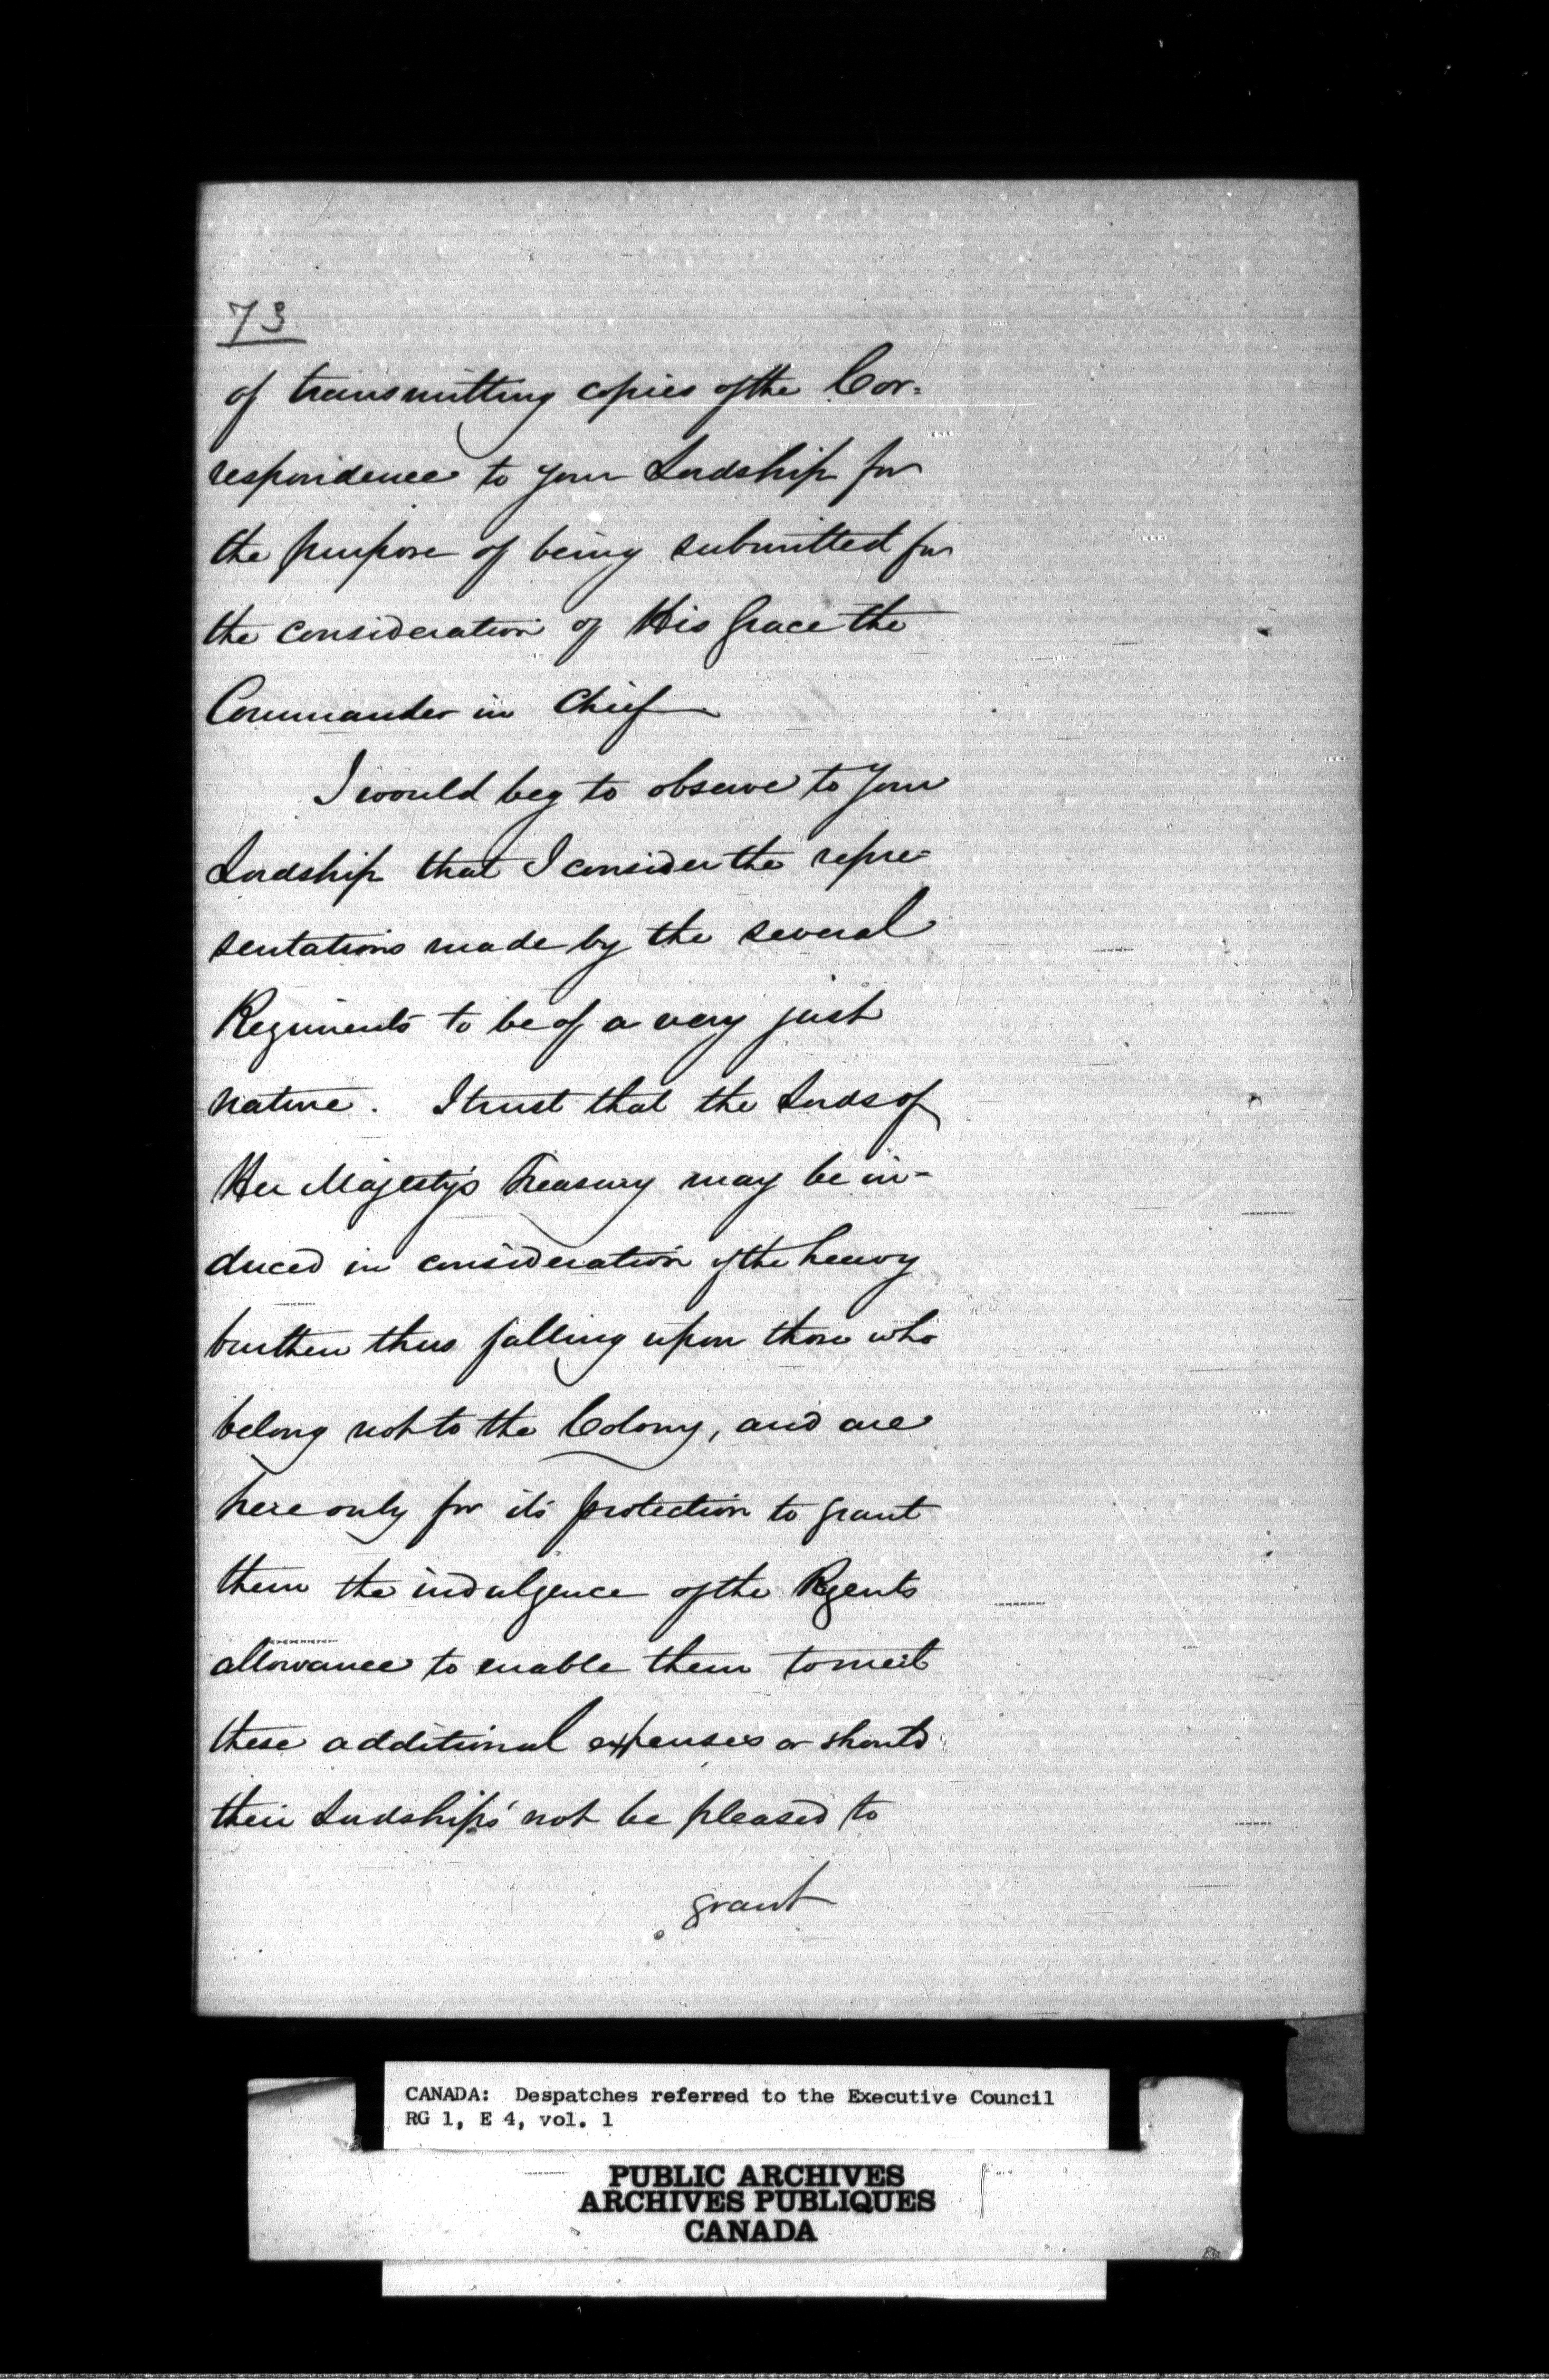 73
of transmitting copies of the Cor=
respondence to your Lordship for
the purpose of being submitted for
the consideration of His Grace the
Commander in Chief
I would beg to observe to Your
Lordship that I consider the repre=
sentations made by the several
Regiments to be of a very just
nature. I trust that the Lords of
Her Majesty's Treasury may be in=
duced in consideration of the heavy
burthen thus falling upon those who
belong not to the Colony, and are
here only for its protection to grant
them the indulgence of the Regents
allowance to enable them to meet
these additional expenses or should
their Lordships' not be pleased to
grant
CANADA: Despatches referred to the Executive Council
RG 1, E 4, vol. 1
PUBLIC ARCHIVES
ARCHIVES PUBLIQUES
CANADA